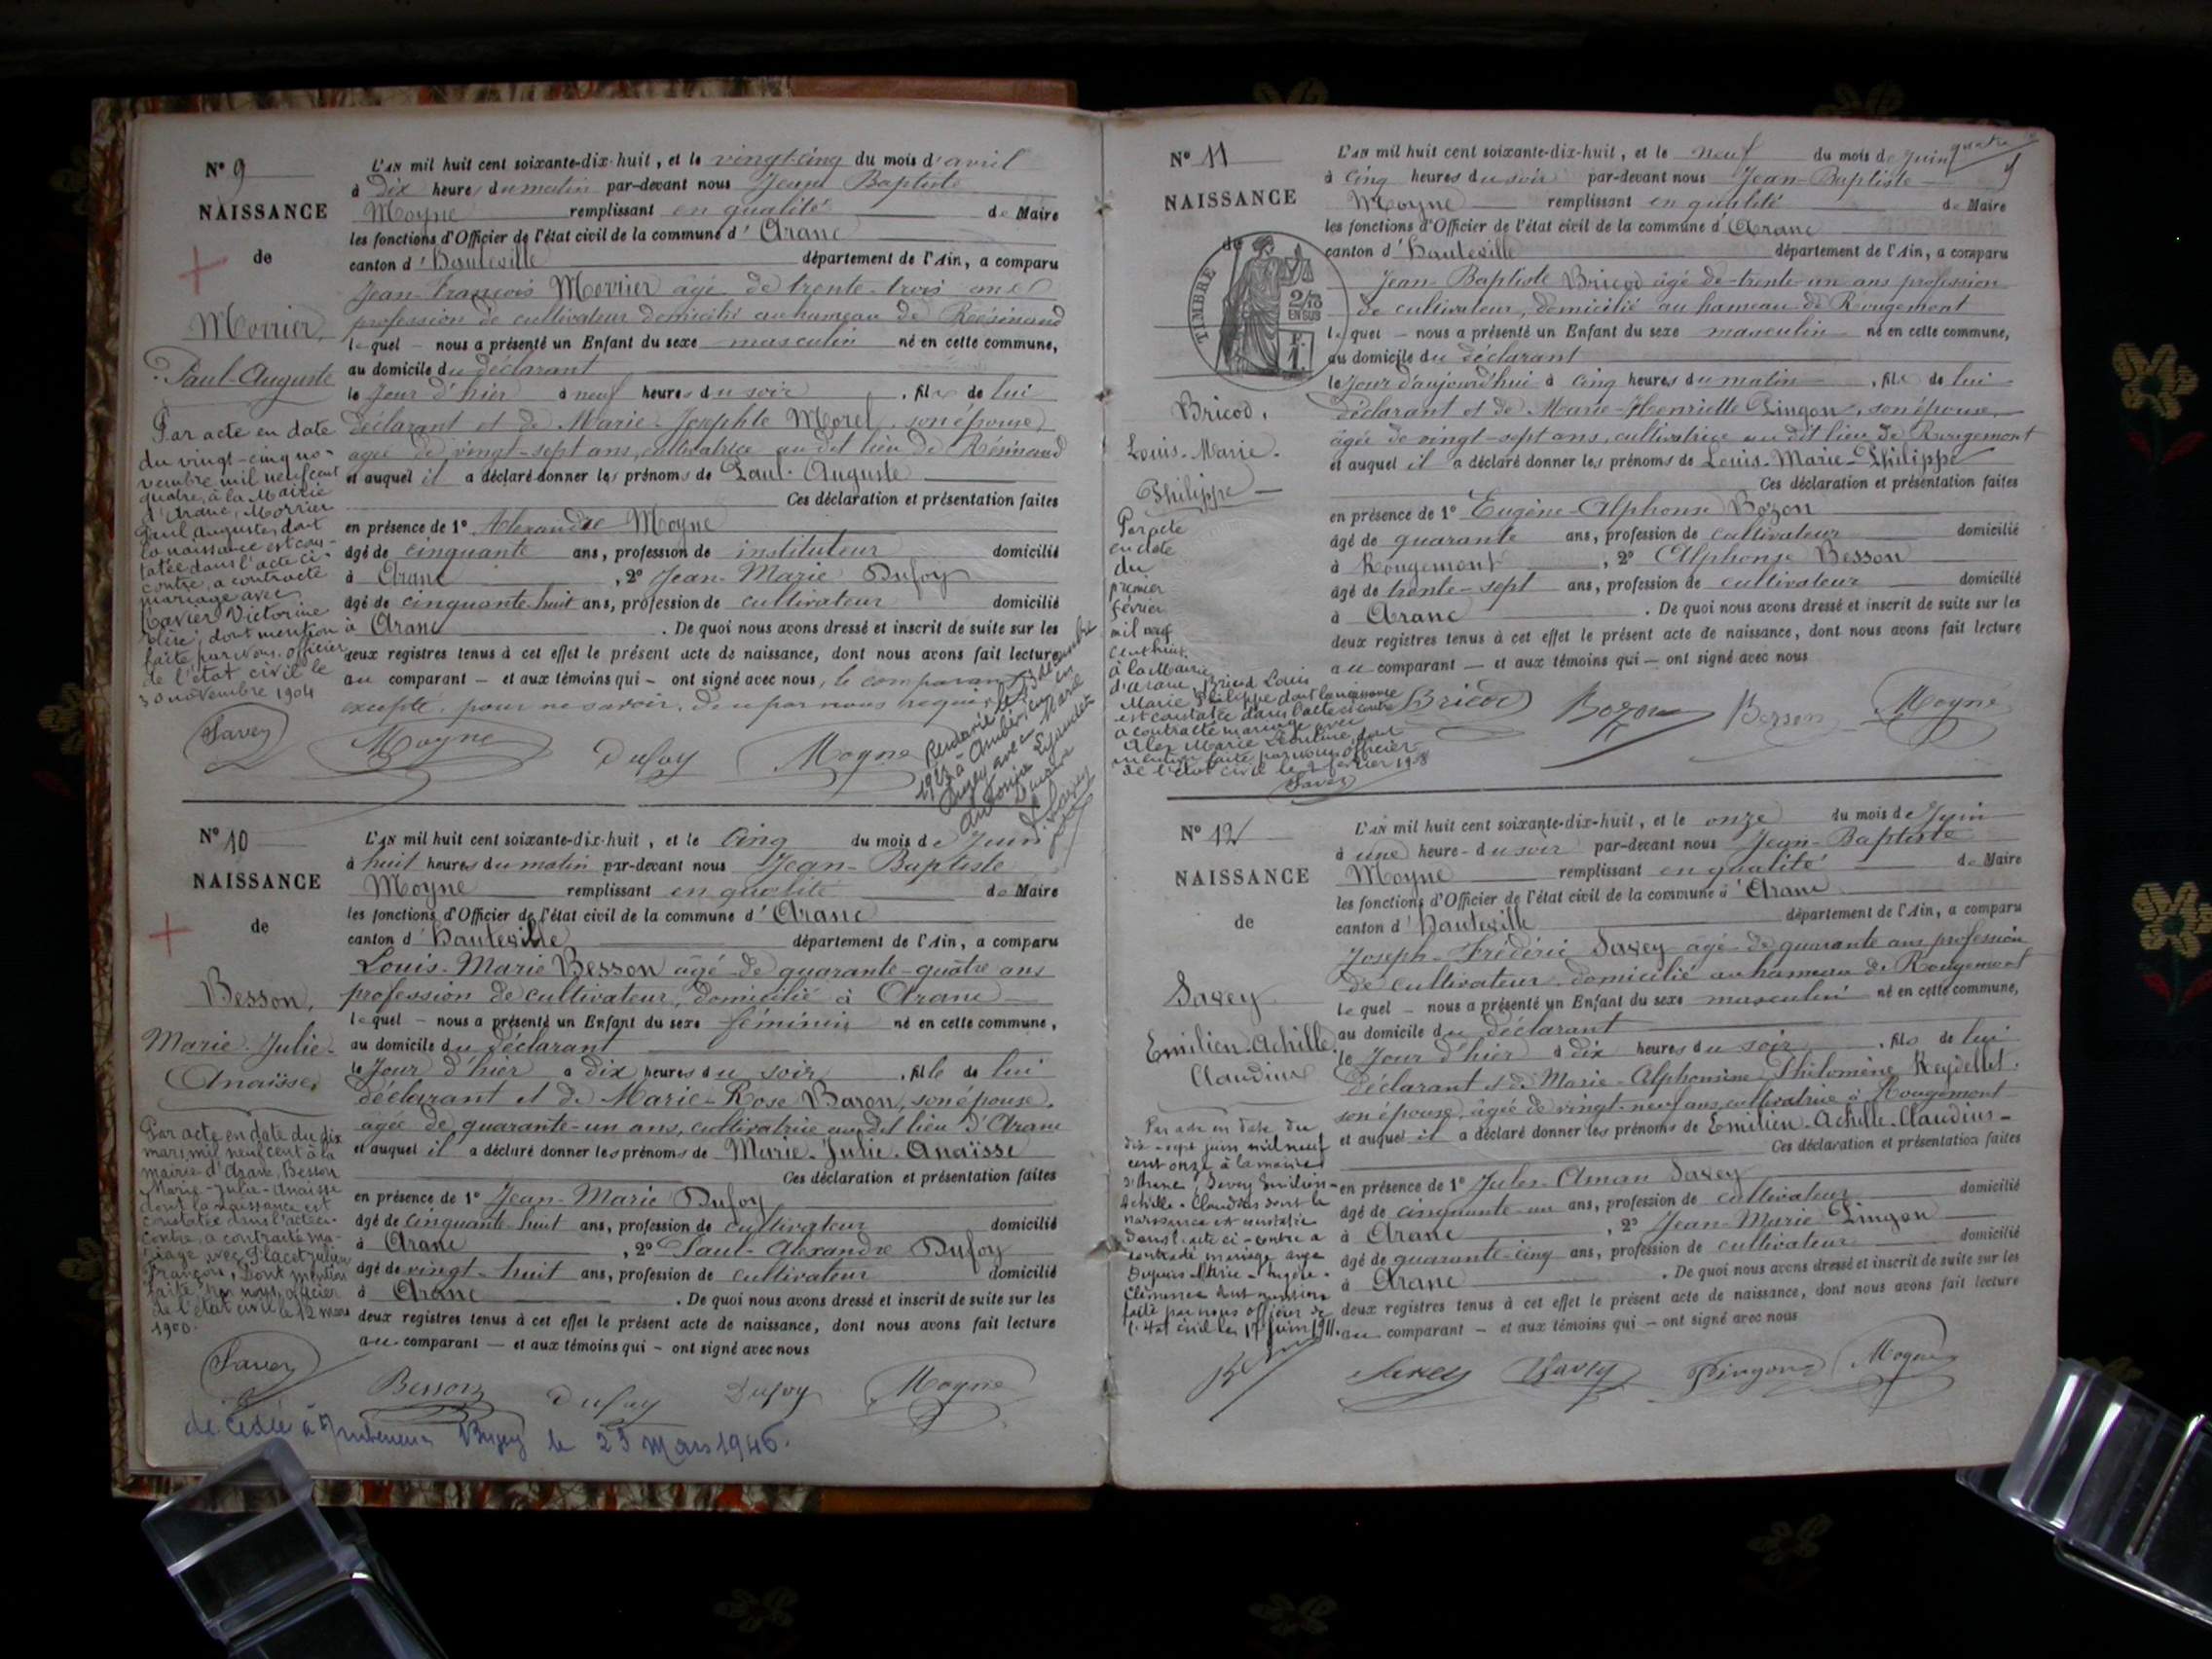 N° 9
NAISSANCE
de
Morrier,
Paul-Auguste
Par acte en date
du vingt-cinq no-
vembre mil neuf cent
quatre, à la Mairie
d'Aranc, Morrier
Paul Auguste, dont
la naissance est cons-
tatée dans l'acte ci-
contre, a contracté
mariage avec
Victorine
dont mention
faite par Nous, officier
de l'état civil le
30 novembre 1904
Savey
L'AN mil huit cent soixante-dix-huit, et le vingt-cinq du mois d'avril
à Dix heures du matin par-devant nous Jean Baptiste
Moyne remplissant en qualité de Maire
les fonctions d'Officier de l'état civil de la commune d'Aranc
canton d'Hauteville département de l'Ain, a comparu
Jean-François Morrier âgé de trente-trois ans
profession de cultivateur domicilié au hameau de Résinand
lequel - nous a présenté un Enfant du sexe masculin né en cette commune,
au domicile du déclarant
le Jour d'hier à neuf heures du soir, fils de lui
déclarant et de Marie-Josephte Morel, son épouse,
âgée de vingt-sept ans, cultivatrice au dit lieu de Résinand
et auquel il a déclaré donner les prénoms de Paul-Auguste
Ces déclaration et présentation faites
en présence de 1° Alexandre Moyne
âgé de cinquante ans, profession de instituteur domicilié
à Aranc, 2° Jean-Marie Dufoy
âgé de cinquante-huit ans, profession de cultivateur domicilié
à Aranc. De quoi nous avons dressé et inscrit de suite sur les
deux registres tenus à cet effet le présent acte de naissance, dont nous avons fait lecture
au comparant - et aux témoins qui - ont signé avec nous, le comparant
excepté, pour ne savoir, de ce par nous requis.
Moyne Dufoy Moyne
N° 10
NAISSANCE
de
Besson,
Marie-Julie-
Anaïsse
Par acte en date du dix
mars mil neuf cent à la
mairie d'Aranc, Besson
Marie-Julie-Anaïsse
dont la naissance est
constatée dans l'acte ci-
contre, a contracté ma-
riage avec Placet Julien
François, Dont mention
faite par nous, officier
de l'état civil le 12 mars
1900.
Savey
L'AN mil huit cent soixante-dix-huit, et le Cinq du mois de Juin
à huit heures du matin par-devant nous Jean-Baptiste
Moyne remplissant en qualité de Maire
les fonctions d'Officier de l'état civil de la commune d'Aranc
canton d'Hauteville département de l'Ain, a comparu
Louis-Marie Besson âgé de quarante-quatre ans
profession de cultivateur, domicilié à Aranc
lequel - nous a présenté un Enfant du sexe féminin né en cette commune,
au domicile du déclarant
le Jour d'hier à dix heures du soir, fille de lui
déclarant et de Marie-Rose Baron, son épouse,
âgée de quarante-un ans, cultivatrice au dit lieu d'Aranc
et auquel il a déclaré donner les prénoms de Marie-Julie-Anaïsse
Ces déclaration et présentation faites
en présence de 1° Jean-Marie Dufoy
âgé de cinquante-huit ans, profession de cultivateur domicilié
à Aranc, 2° Paul-Alexandre Dufoy
âgé de vingt-huit ans, profession de cultivateur domicilié
à Aranc. De quoi nous avons dressé et inscrit de suite sur les
deux registres tenus à cet effet le présent acte de naissance, dont nous avons fait lecture
au comparant - et aux témoins qui - ont signé avec nous
Besson Dufoy Dufoy Moyne
décédée à Bugey le 25 Mars 1946.
quatre
N° 11
NAISSANCE
de
TIMBRE
2/10
EN SUS
F.
1.
Bricod,
Louis-Marie-
Philippe
Par acte
en date
du
premier
février
mil neuf
cent huit,
à la Mairie
d'Aranc, Bricod Louis
Marie Philippe dont la naissance
est constatée dans l'acte ci-contre
a contracté mariage avec
Marie dont
mention faite par nous officier
de l'état civil le 2 février 1908
Savey
L'AN mil huit cent soixante-dix-huit, et le neuf du mois de Juin
à Cinq heures du soir par-devant nous Jean-Baptiste
Moyne remplissant en qualité de Maire
les fonctions d'Officier de l'état civil de la commune d'Aranc
canton d'Hauteville département de l'Ain, a comparu
Jean-Baptiste Bricod âgé de trente-un ans profession
de cultivateur, domicilié au hameau de Rougemont
lequel - nous a présenté un Enfant du sexe masculin né en cette commune,
au domicile du déclarant
le Jour d'aujourd'hui à Cinq heures du matin, fils de lui
déclarant et de Marie-Henriette Pingon, son épouse,
âgée de vingt-sept ans, cultivatrice au dit lieu de Rougemont
et auquel il a déclaré donner les prénoms de Louis-Marie-Philippe
Ces déclaration et présentation faites
en présence de 1° Eugène-Alphonse Bozon
âgé de quarante ans, profession de cultivateur domicilié
à Rougemont, 2° Alphonse Besson
âgé de trente-sept ans, profession de cultivateur domicilié
à Aranc. De quoi nous avons dressé et inscrit de suite sur les
deux registres tenus à cet effet le présent acte de naissance, dont nous avons fait lecture
au comparant - et aux témoins qui - ont signé avec nous
Bricod Bozon Besson Moyne
N° 12
NAISSANCE
de
Savey
Emilien-Achille
Claudius
Par acte en date du
dix-sept juin mil neuf
cent onze à la mairie
d'Aranc, Savey Emilien-
Achille-Claudius dont la
naissance est constatée
dans l'acte ci-contre a
contracté mariage avec
Dupuis Marie-
Clémence dont mention
faite par nous officier de
l'état civil le 17 juin 1911.
L'AN mil huit cent soixante-dix-huit, et le onze du mois de Juin
à une heure du soir par-devant nous Jean-Baptiste
Moyne remplissant en qualité de Maire
les fonctions d'Officier de l'état civil de la commune d'Aranc
canton d'Hauteville département de l'Ain, a comparu
Joseph-Frédéric Savey âgé de quarante ans profession
de cultivateur domicilié au hameau de Rougemont
lequel - nous a présenté un Enfant du sexe masculin né en cette commune,
au domicile du déclarant
le Jour d'hier à dix heures du soir, fils de lui
déclarant et de Marie-Alphonsine-Philomène Reydellet,
son épouse, âgée de vingt-neuf ans, cultivatrice à Rougemont
et auquel il a déclaré donner les prénoms de Emilien-Achille-Claudius
Ces déclaration et présentation faites
en présence de 1° Jules-Aman Savey
âgé de cinquante-un ans, profession de cultivateur domicilié
à Aranc, 2° Jean-Marie Pingon
âgé de quarante-cinq ans, profession de cultivateur domicilié
à Aranc. De quoi nous avons dressé et inscrit de suite sur les
deux registres tenus à cet effet le présent acte de naissance, dont nous avons fait lecture
au comparant - et aux témoins qui - ont signé avec nous
Savey Savey Pingon Moyne